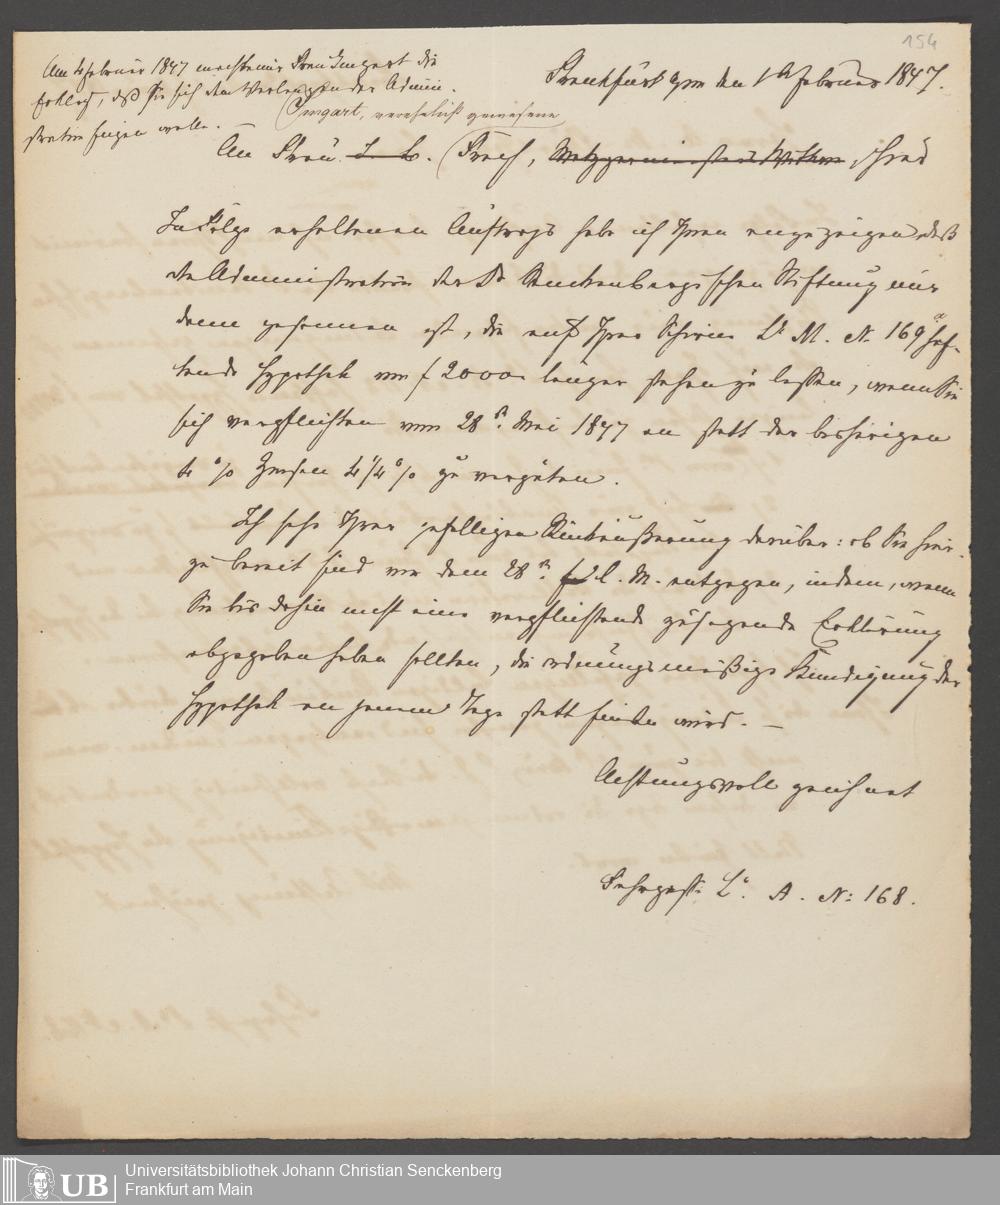 154
Am 4 Februar 1847 machte mir Frau Imgart die
Erklrg, daß Sie sich dem Verlangen der Admini-
stration fügen wolle. —
Frankfurt a/m den 1n Februar 1847.
Imgart, verehelicht gewesene
An Frau Frech, hier
In Folge erhaltenen Auftrags habe ich Ihnen anzuzeigen, daß
die Administration der Dr Senckenbergischen Stiftung nur
dann gesonnen ist, die auf Ihrer Scheuer Lr M. No 169a haf-
tende Hypothek von f 2000 länger stehen zu lassen, wenn Sie
sich verpflichten vom 28n. Mai 1847 an statt der bisherigen
4 % Zinsen 4 1/4 % zu vergüten.
Ich sehe Ihrer gefälligen Rückäußerung darüber: ob Sie hier-
zu bereit sind vor dem 28n. l. M. entgegen, indem, wenn
Sie bis dahin nicht eine verpflichtende zusagende Erklärung
abgegeben haben sollten, die ordnungsmäßige Kündigung der
Hypothek an jenem Tage statt finden wird. —
Achtungsvoll zeichnet
Fahrgasse Lr. A. No: 168.
UB Universitätsbibliothek Johann Christian Senckenberg
Frankfurt am Main